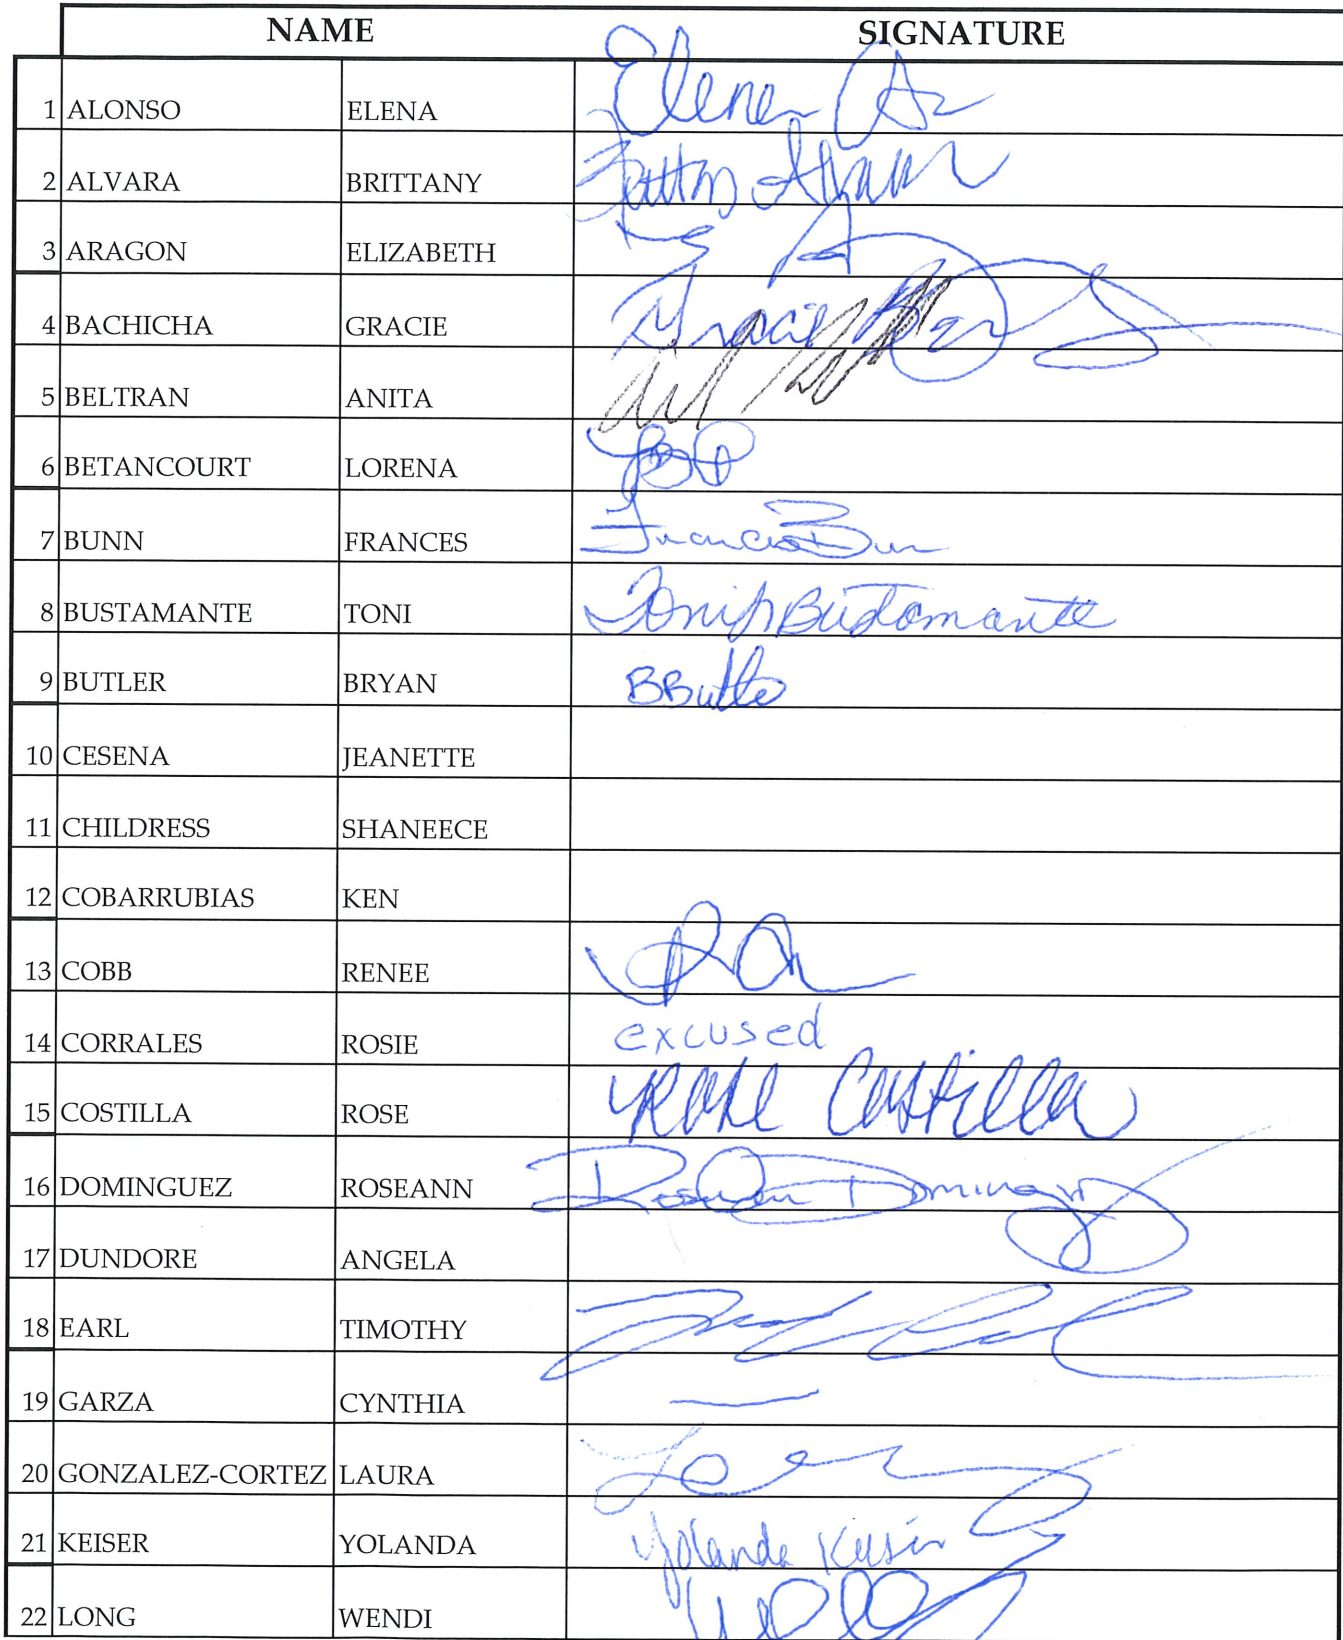 NAME SIGNATURE
1 ALONSO ELENA Elena
2 ALVARA BRITTANY
3 ARAGON ELIZABETH
4 BACHICHA GRACIE Gracie
5 BELTRAN ANITA
6 BETANCOURT LORENA
7 BUNN FRANCES Frances Bun
8 BUSTAMANTE TONI Toni Bustamante
9 BUTLER BRYAN BButler
10 CESENA JEANETTE
11 CHILDRESS SHANEECE
12 COBARRUBIAS KEN
13 COBB RENEE
14 CORRALES ROSIE excused
15 COSTILLA ROSE Rose Costilla
16 DOMINGUEZ ROSEANN Roseann Dominguez
17 DUNDORE ANGELA
18 EARL TIMOTHY
19 GARZA CYNTHIA —
20 GONZALEZ-CORTEZ LAURA
21 KEISER YOLANDA Yolanda Keiser
22 LONG WENDI